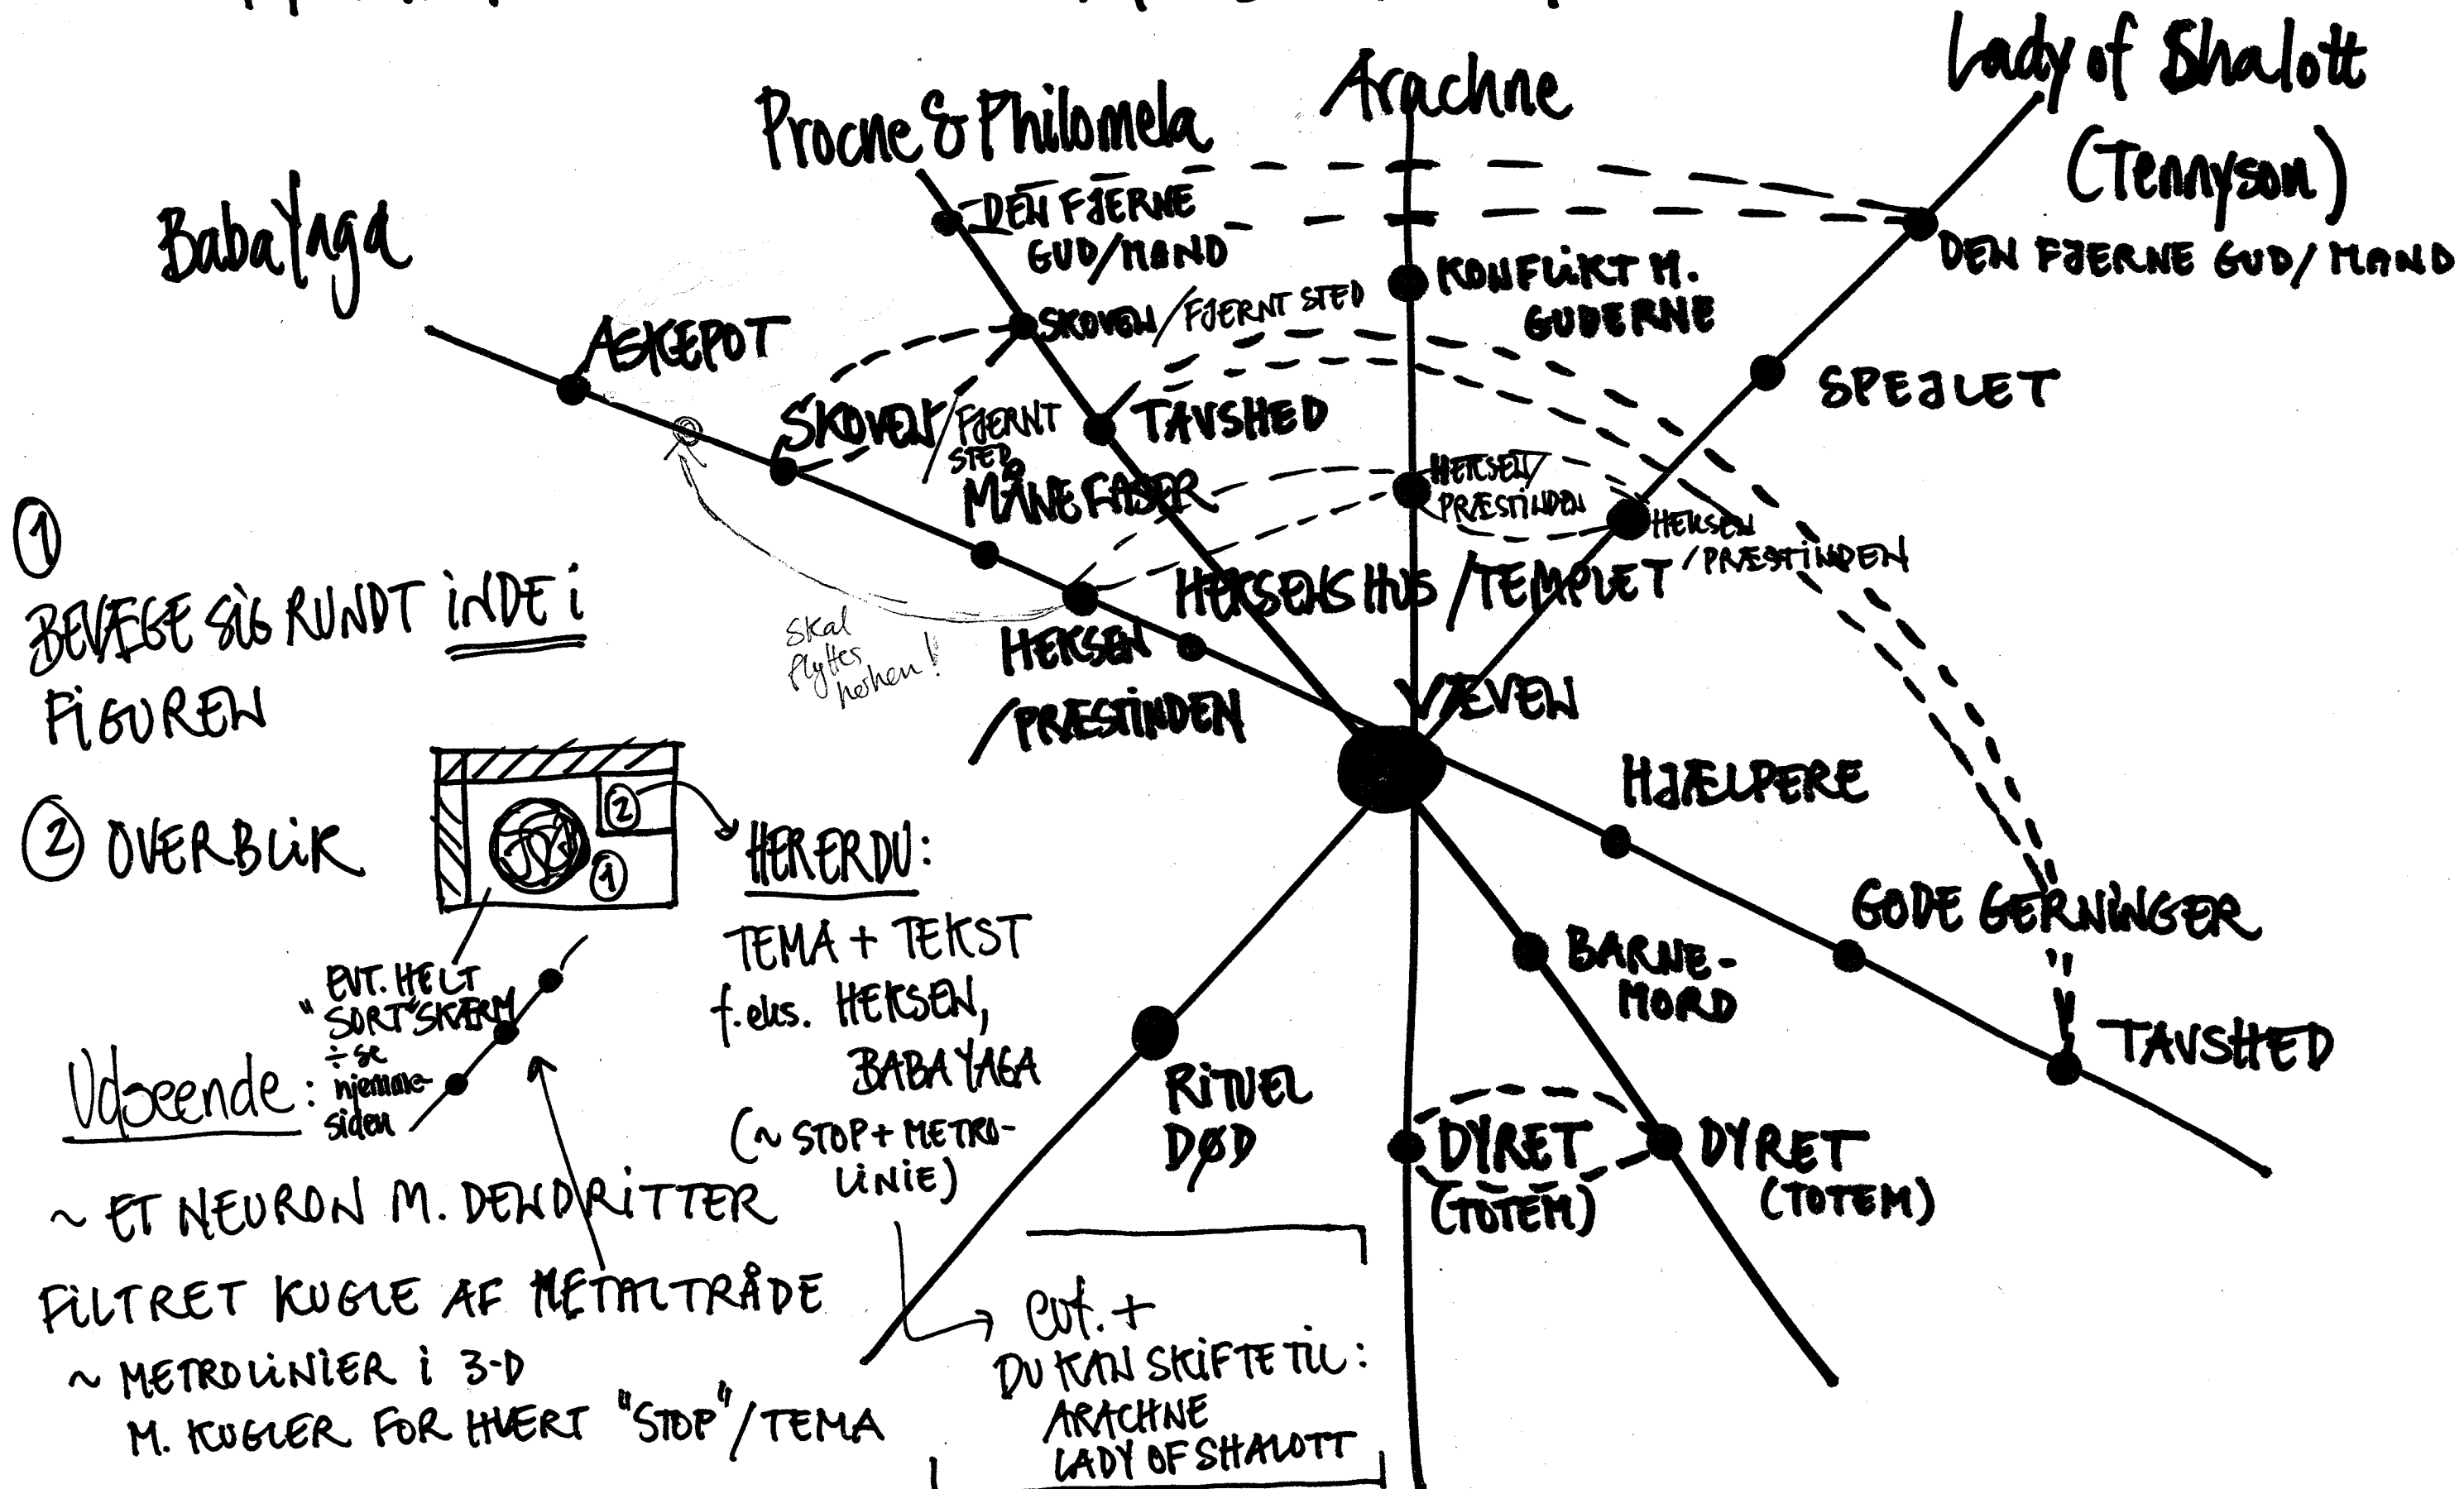 Baba Yaga
Procne & Philomela
Arachne
Lady of Shalott
(Tennyson)
DEN FJERNE
GUD/MAND
DEN FJERNE GUD/MAND
KONFLIKT M.
GUDERNE
SKOVEN/FJERNT STED
ASKEPOT
SPEJLET
SKOVEN/FJERNT
STED
TAVSHED
MÅNEFASER
HEKSEN/
PRÆSTINDEN
HEKSEN
/PRÆSTINDEN
HEKSENS HUS/TEMPLET
Skal
flyttes
herhen!
HEKSEN
/PRÆSTINDEN
VÆVEN
HJÆLPERE
GODE GERNINGER
TAVSHED
BARNE-
MORD
RITUEL
DØD
DYRET
(TOTEM)
DYRET
(TOTEM)
1
BEVÆGE SIG RUNDT INDE i
FIGUREN
2 OVERBLIK
2
1
HER ER DU:
TEMA + TEKST
f.eks. HEKSEN,
BABA YAGA
(~ STOP + METRO-
LINIE)
EVT. HELT
"SORT" SKÆRM
÷ se
hjemme-
siden
Udseende:
~ ET NEURON M. DENDRITTER
FILTRET KUGLE AF METALTRÅDE
~ METROLINIER i 3-D
M. KUGLER FOR HVERT "STOP"/TEMA
evt. +
DU KAN SKIFTE TIL:
ARACHNE
LADY OF SHALOTT